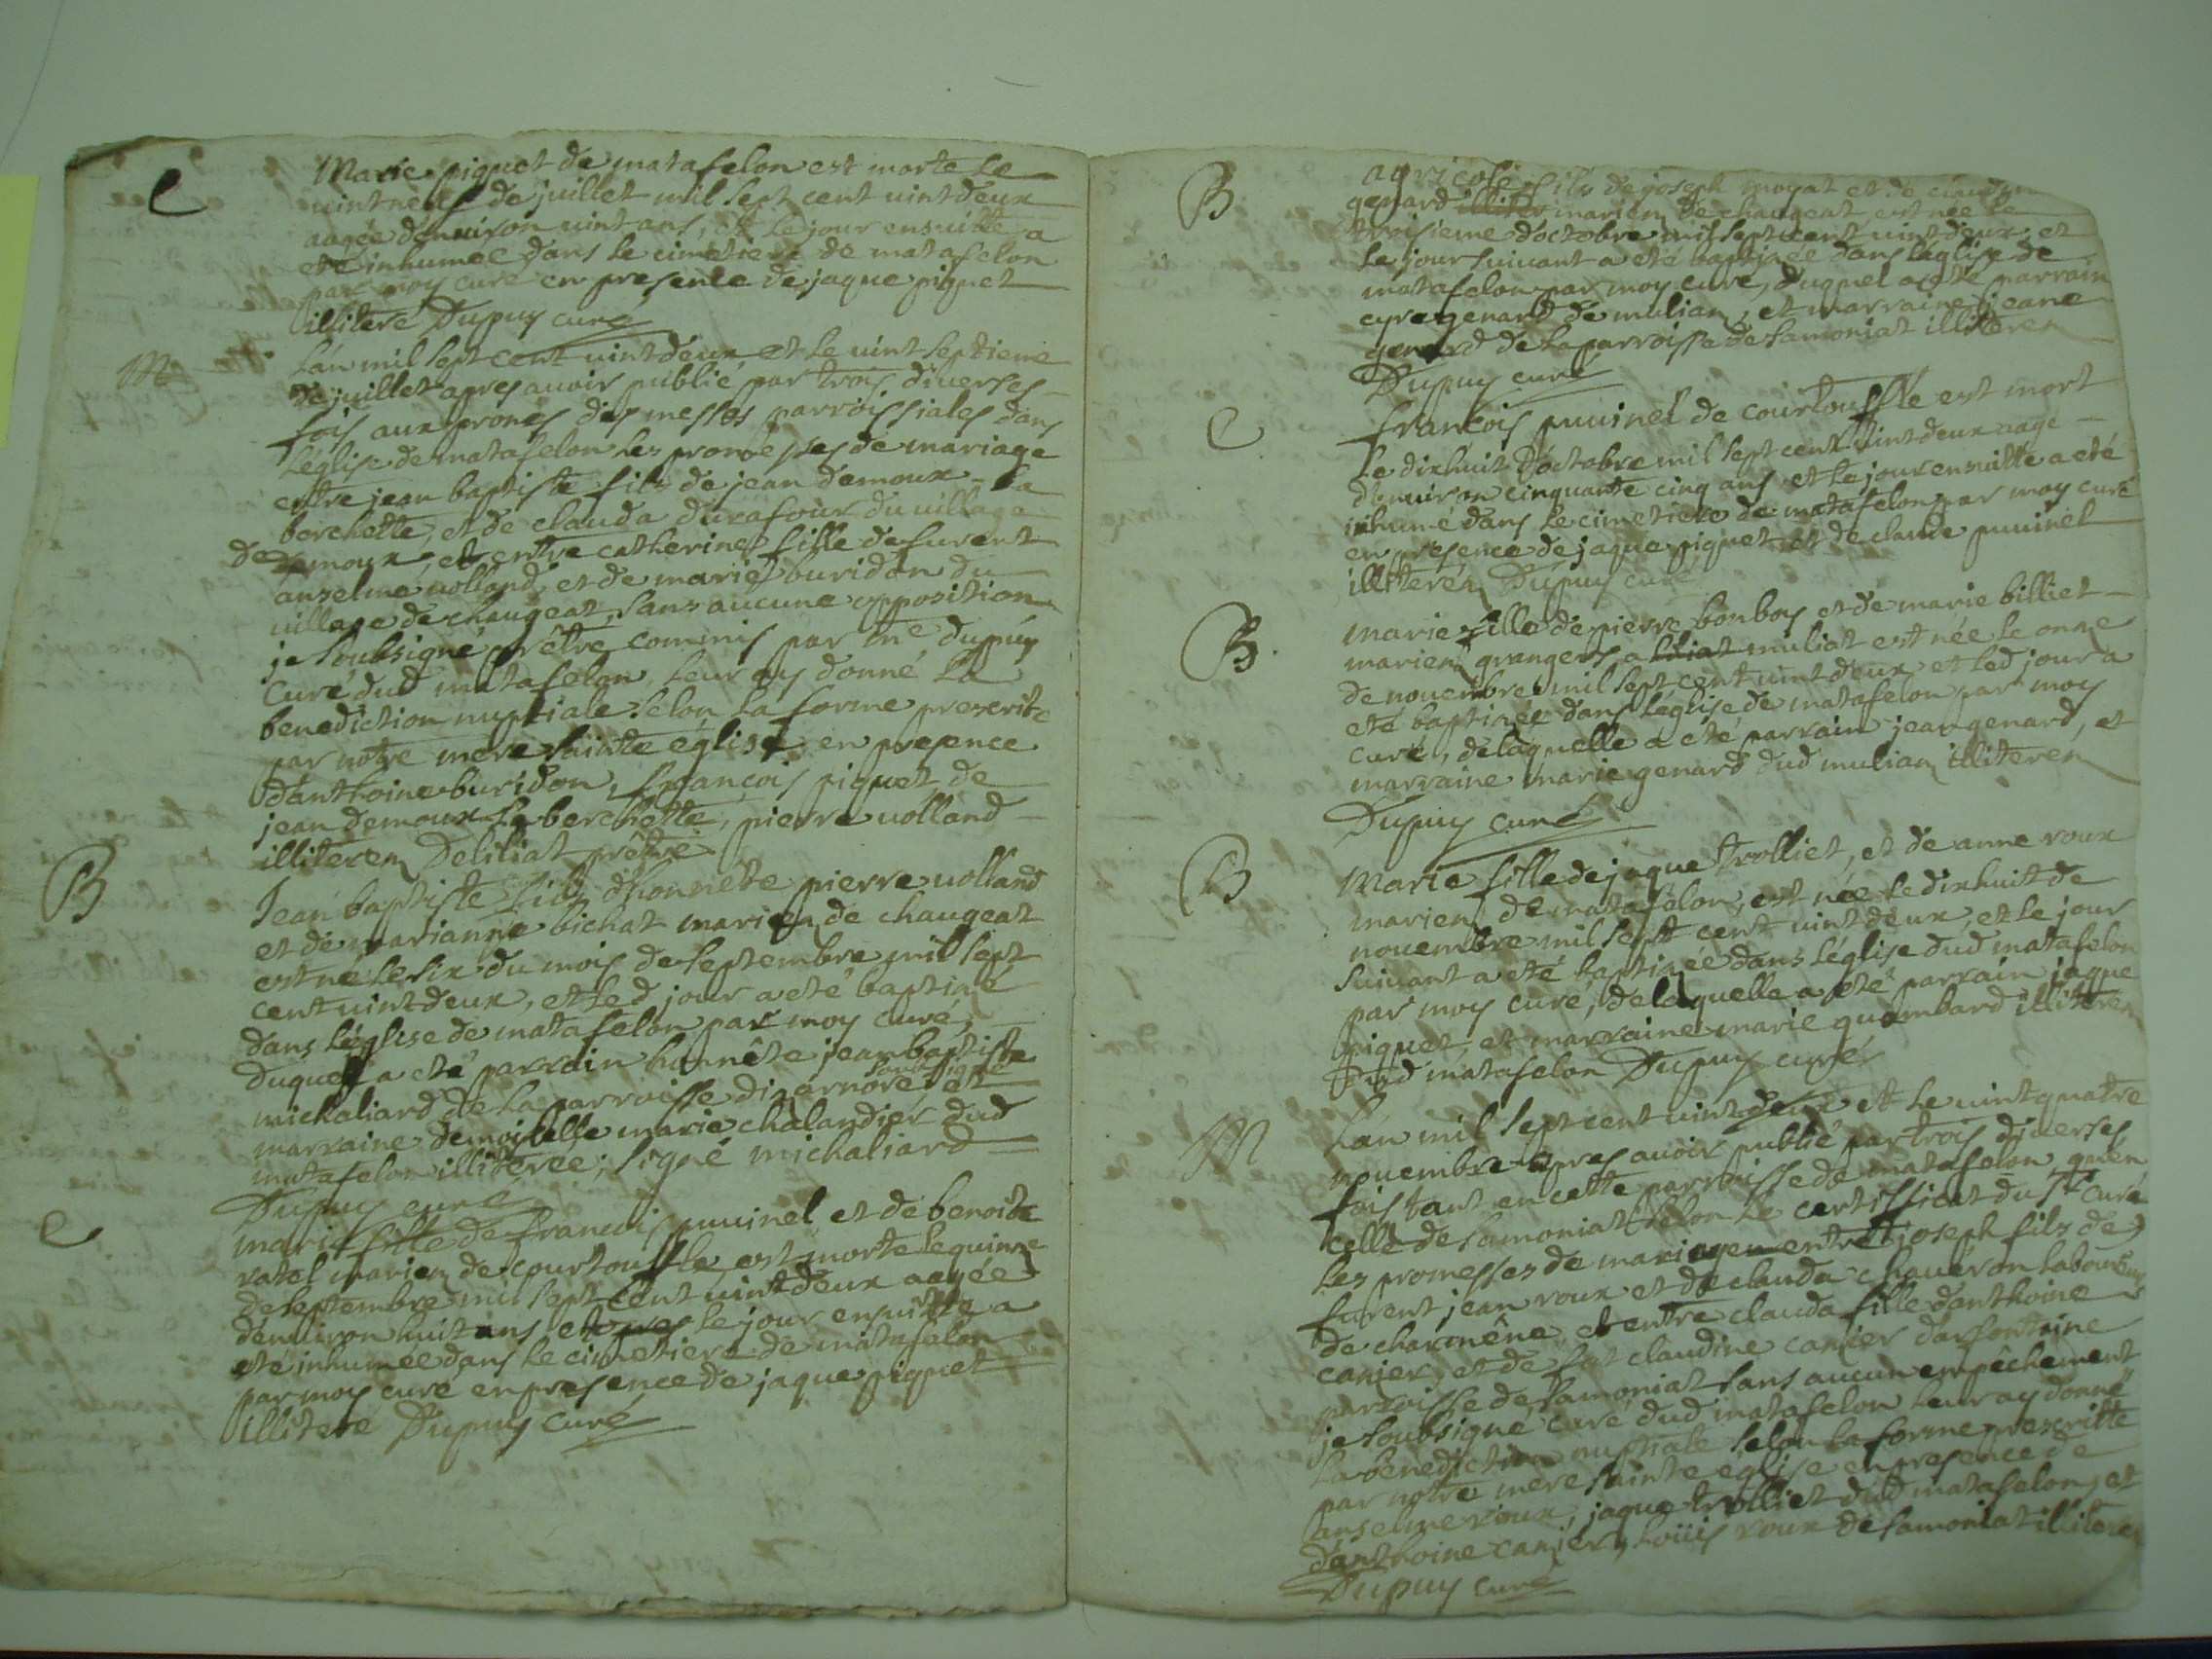 C
Marie piquet de matafelon est morte le
vintneuf de juillet mil sept cent vint deux
aagée d'environ vint ans, et le jour ensuitte a
eté inhumée dans le cimetiere de matafelon
par moy curé en presence de jaque piquet
illiteré Dupuy curé
M
L'an mil sept cent vint deux et le vint septieme
de juillet apres avoir publié par trois diverses
fois aux prones des messes parroissiales dans
l'église de matafelon les promesses de mariage
entre jean baptiste fils de jean demoux la
berchette, et de clauda durafour du village
de demoux, et entre catherine fille de furent
anselme volland et de marie buridon du
village de chaugeat, sans aucune opposition
je soubsigné prêtre commis par mre dupuy
curé dud matafelon, leur ay donné la
benediction nuptiale selon la forme prescritte
par notre mere sainte église en presence
d'anthoine buridon, françois piquet, de
jean demoux la berchette, pierre volland
illiteren Deliliat prêtre
B
Jean baptiste fils d'honnéte pierre volland
et de marianne bichat marien de chaugeat
est né le six du mois de septembre mil sept
cent vint deux, et led jour a eté baptizé
dans l'église de matafelon par moy curé,
duquel a eté parrain honnête jean baptiste
michaliard de la parroisse dizarnore soubsigné et
marraine demoiselle marie chalandier dud
matafelon illiterée; signé michaliard
Dupuy curé
C
marie fille de françois puvinel et de benoite
ratel marien de courtouffle, est morte le quinze
de septembre mil sept cent vint deux aagée
d'environ huit ans et le jour ensuitte a
eté inhumée dans le cimetiere de matafelon
par moy curé en presence de jaque piquet
illitere Dupuy curé
B
agricole fils de joseph moyat et de claudine
genard marien de chaugeat, est née le
troisieme d'octobre mil sept cent vint deux et
le jour suivant a eté baptizée dans l'église de
matafelon par moy curé, duquel a eté parrain
cyre genard de mulian, et marraine jeane
genard de la parroisse de samoniat illiteren
Dupuy curé
C
françois puvinel de courtouffle est mort
le dixhuit d'octobre mil sept cent vint deux aage
d'environ cinquante cinq ans et le jour ensuitte a eté
inhumé dans le cimetiere de matafelon par moy curé
en presence de jaque piquet et de claude puvinel
illiteren Dupuy curé
B
marie fille de pierre bonboy et de marie billiet
marien grangers a muliat est née le onze
de novembre mil sept cent vint deux et led jour a
eté baptizée dans l'église de matafelon par moy
curé, de laquelle a eté parrain jean genard, et
marraine marie genard dud mulian illiteren
Dupuy curé
B
Marie fille de jaque trolliet, et de anne roux
marien de matafelon, est née le dixhuit de
novembre mil sept cent vint deux, et le jour
suivant a eté baptizée dans l'église dud matafelon
par moy curé, de laquelle a eté parrain jaque
piquet, et marraine marie guombard illiteren
dud matafelon Dupuy curé
M
L'an mil sept cent vint deux et le vint quatre
novembre apres avoir publié par trois diverses
fois tant en cette parroisse de matafelon qu'en
celle de samoniat selon le certifficat du Sr curé
les promesses de mariage entre joseph fils de
furent jean roux et de clauda chaveron laboureurs
de charmêne, et entre clauda fille d'anthoine
canier, et de fut claudine canier darfontaine
parroisse de samoniat sans aucun empêchement
je soubsigné curé dud matafelon leur ay donné
la benediction nuptiale selon la forme prescritte
par notre mere sainte église en presence de
anselme roux, jaque trolliet dud matafelon, et
d'anthoine canier, loüis roux de samoniat illiteren
Dupuy curé